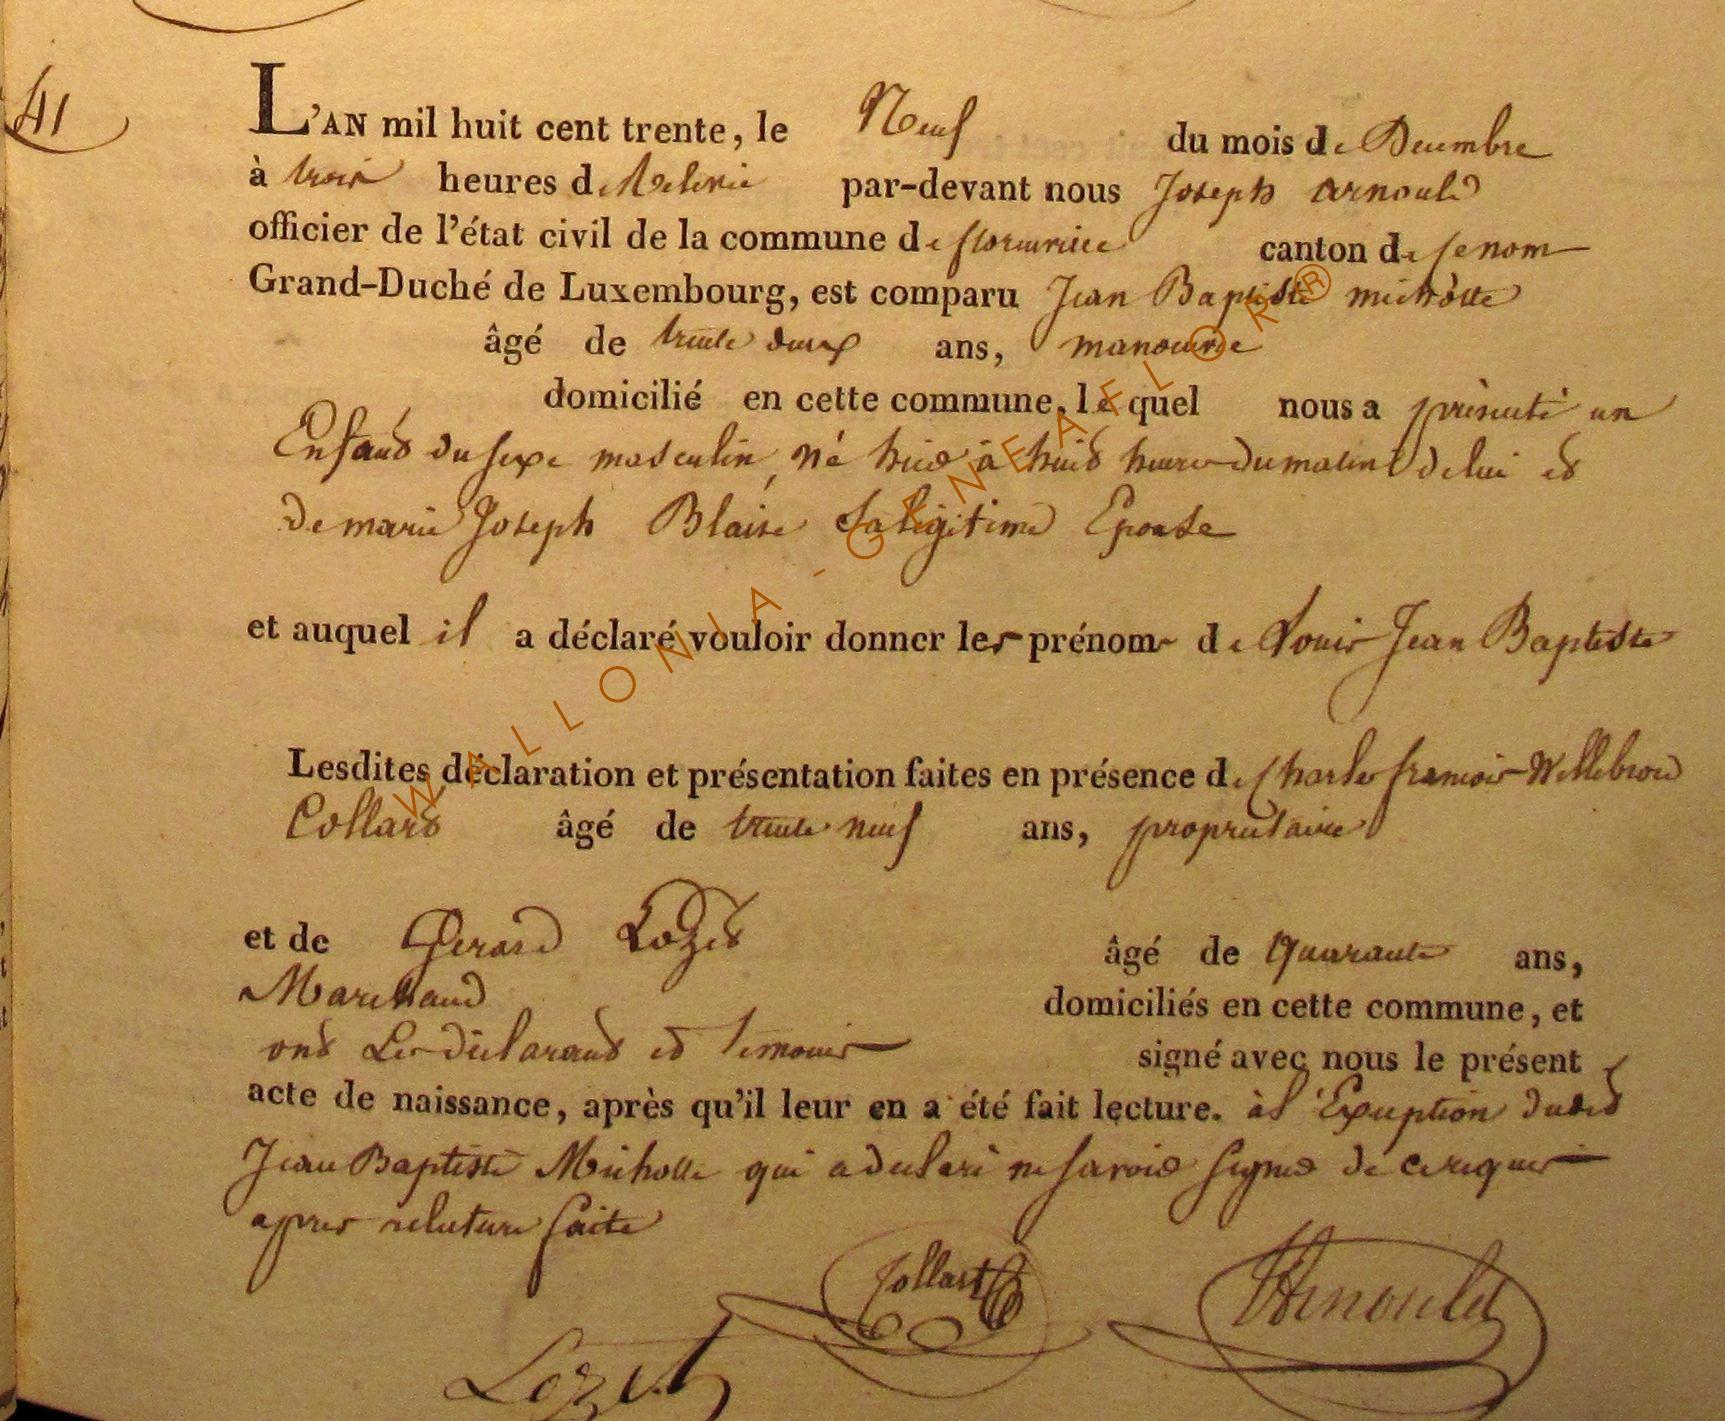 41
L'AN mil huit cent trente, le Neuf du mois de Decembre
à trois heures de Relevée par-devant nous Joseph arnould
officier de l'état civil de la commune de florenville canton de ce nom
Grand-Duché de Luxembourg, est comparu Jean Baptiste michotte
âgé de trente deux ans, manœuvre
domicilié en cette commune, lequel nous a présenté un
Enfant du sexe masculin, né hier à huit heures du matin de lui et
de marie Joseph Blaise Sa légitime Epouse
et auquel il a déclaré vouloir donner les prénoms de Louis Jean Baptiste
Lesdites déclaration et présentation faites en présence de Charles francois Willebrord
Collard âgé de trente neuf ans, propriétaire
et de Gerard Lozet âgé de Quarante ans,
Marchand domiciliés en cette commune, et
ont Les déclarant et temoins signé avec nous le présent
acte de naissance, après qu'il leur en a été fait lecture. à l'Exception dudit
Jean Baptiste Michotte qui a declaré ne savoir signer de ce requis
apres relecture faite
Collart
Arnould
Lozet
WALLONIA - GENEAFLOR®